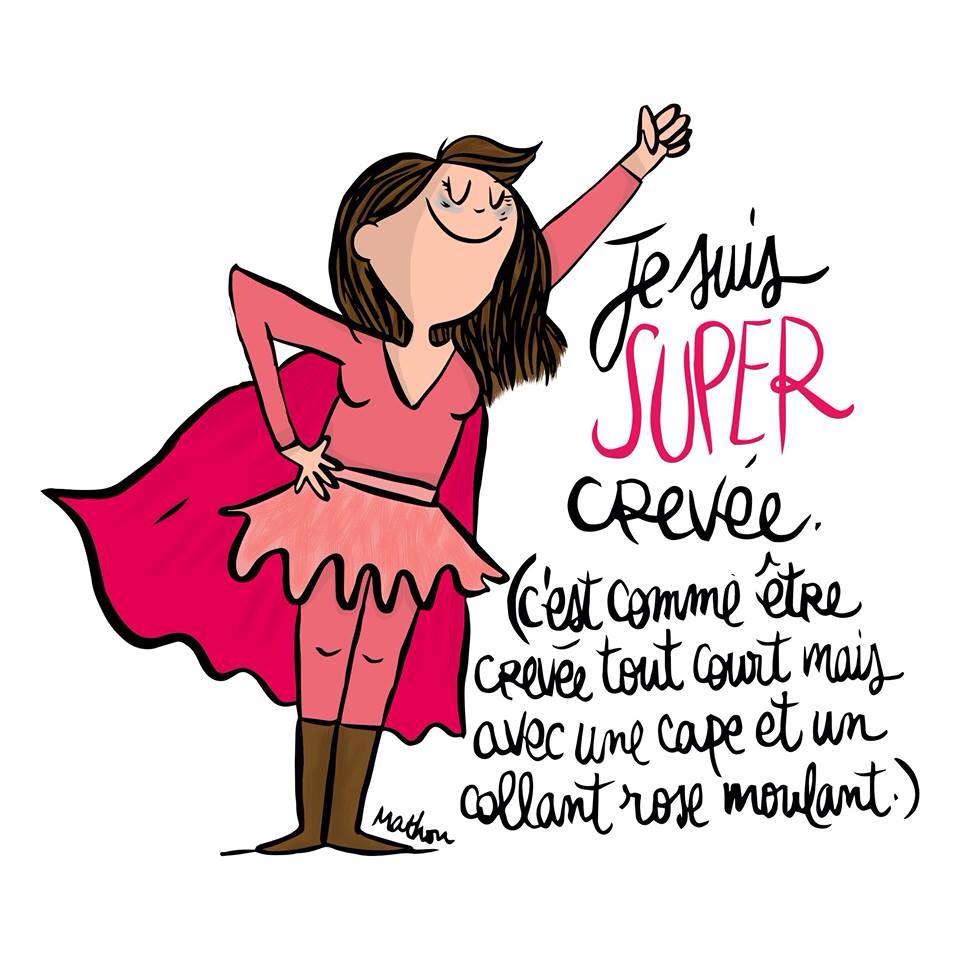 Je suis
SUPER
crevée.
(c'est comme être
crevée tout court mais
avec une cape et un
collant rose moulant.)
Mathou